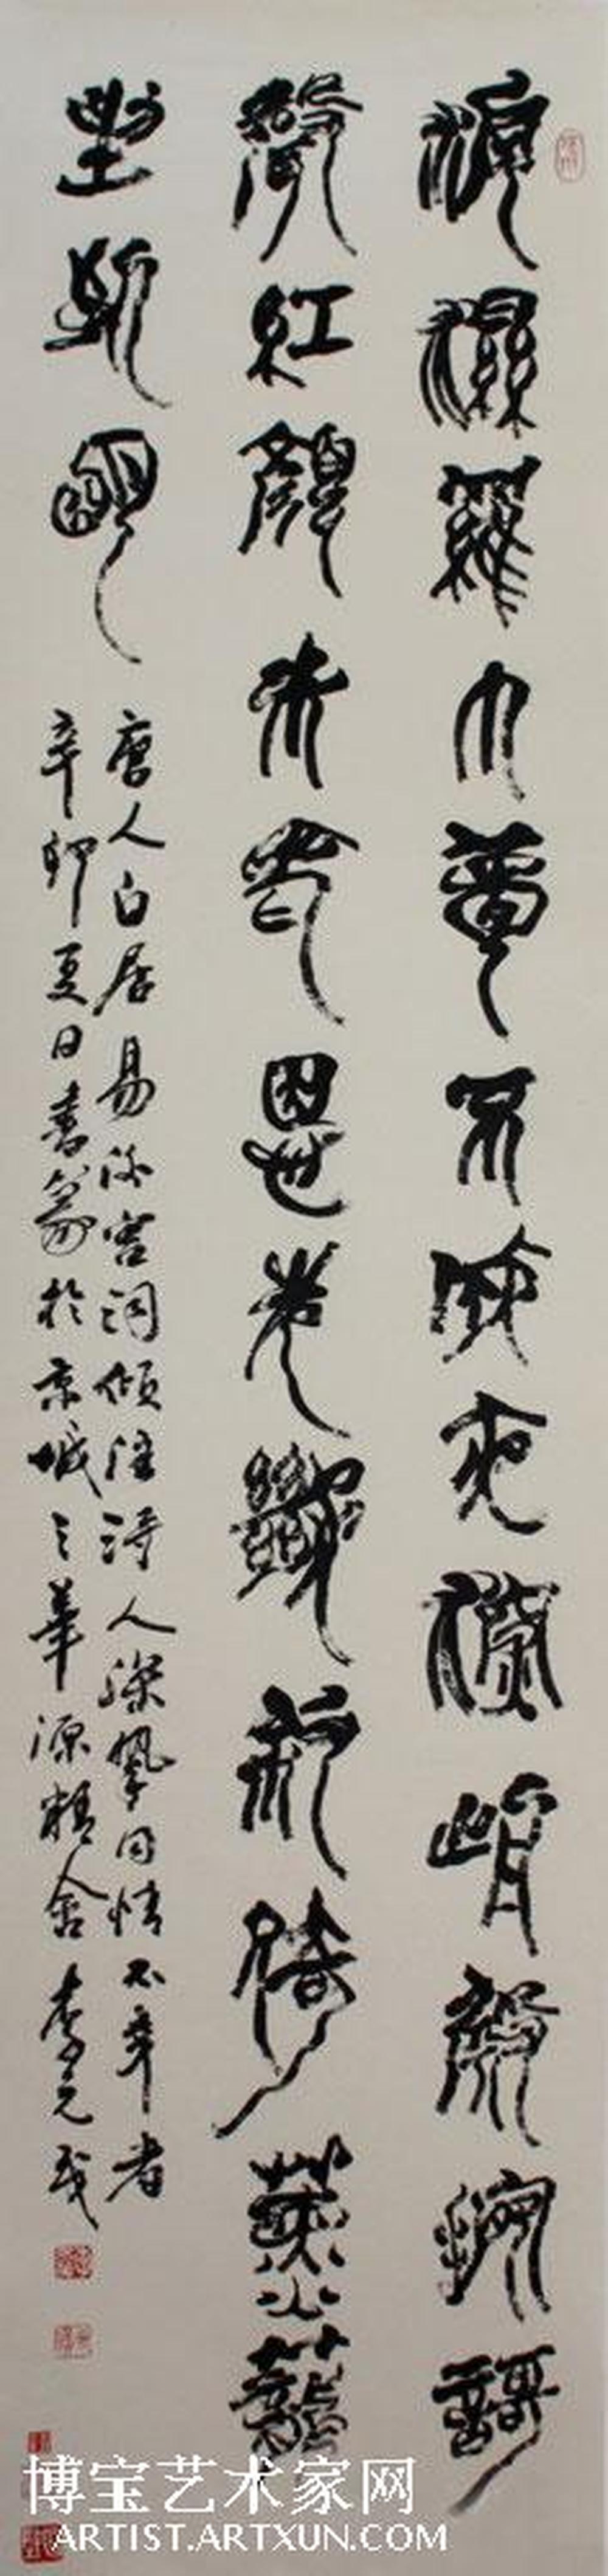 淚濕羅巾夢不成夜深前殿按歌
聲紅顏未老恩先斷斜倚薰籠
坐到明
唐人白居易後宮詞傾注詩人深摯同情不幸者
辛卯夏日書篆於京城之華源精舍李元茂
博宝艺术家网
ARTIST.ARTXUN.COM